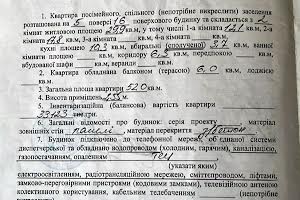 1. Квартира посімейного, спільного (непотрібне викреслити) заселення
розташована на 5 поверсі 16 поверхового будинку та складається з 2
кімнат житловою площею 29,9 кв, м у тому числі 1-а кімната 12,1 кв. м,
2-а кімната 17,8 кв. м, 3-а кімната кв. м, 4-а кімната кв. м,
кухні площею 10,3 кв.м, вбиральні (сполученої) 3,7 кв.м, ванної
кімнати кв.м, коридору 6,3 кв.м, передпокою кв.м,
вбудованої шафи кв.м, веранди кв.м.
2. Квартира обладнана балконом (терасою) 6,0 кв.м, лоджією
кв.м.
3. Загальна площа квартири 52,0 кв.м.
4. Висота приміщень м.
5. Інвентаризаційна (балансова) вартість квартири
6. Загальні відомості про будинок: серія проекту матеріал
зовнішніх стін панелі, матеріал перекриття
7. Будинок підключено до телефонної мережі, об'єднаної системи
диспетчерської та обладнано водопроводом (холодним, гарячим), каналізацією,
газопостачанням, опаленням ТЕЦ
(указати яким)
електроосвітленням, радіотрансляційною мережею, сміттєпроводом, ліфтами,
замково-переговорними пристроями (кодовими замками), телевізійною антеною
колективного користування, кабельним телебаченням